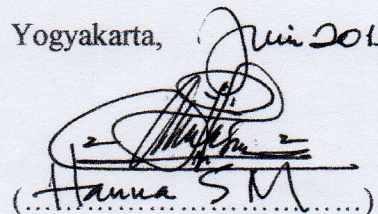 Yogyakarta, Juni 201
(Hanna S M)